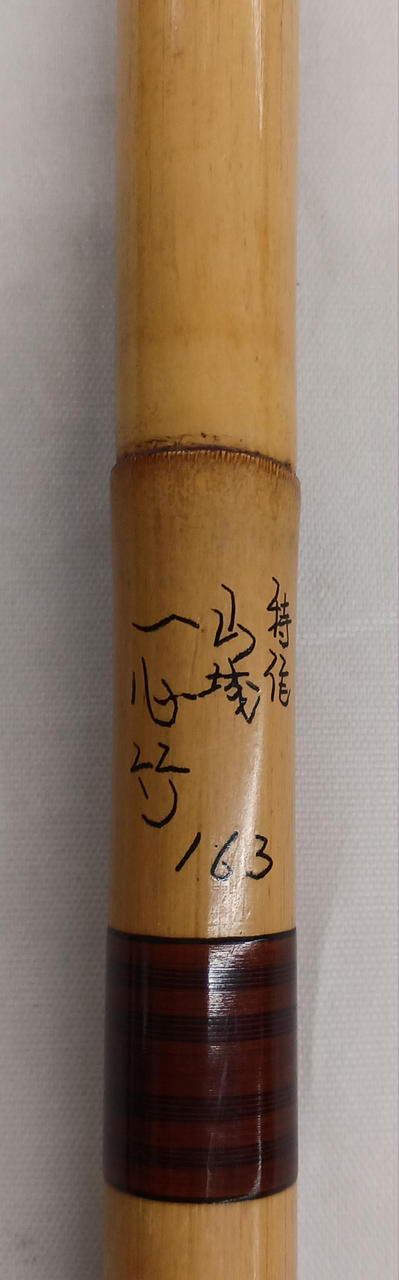 特作
山城
一心竹
163